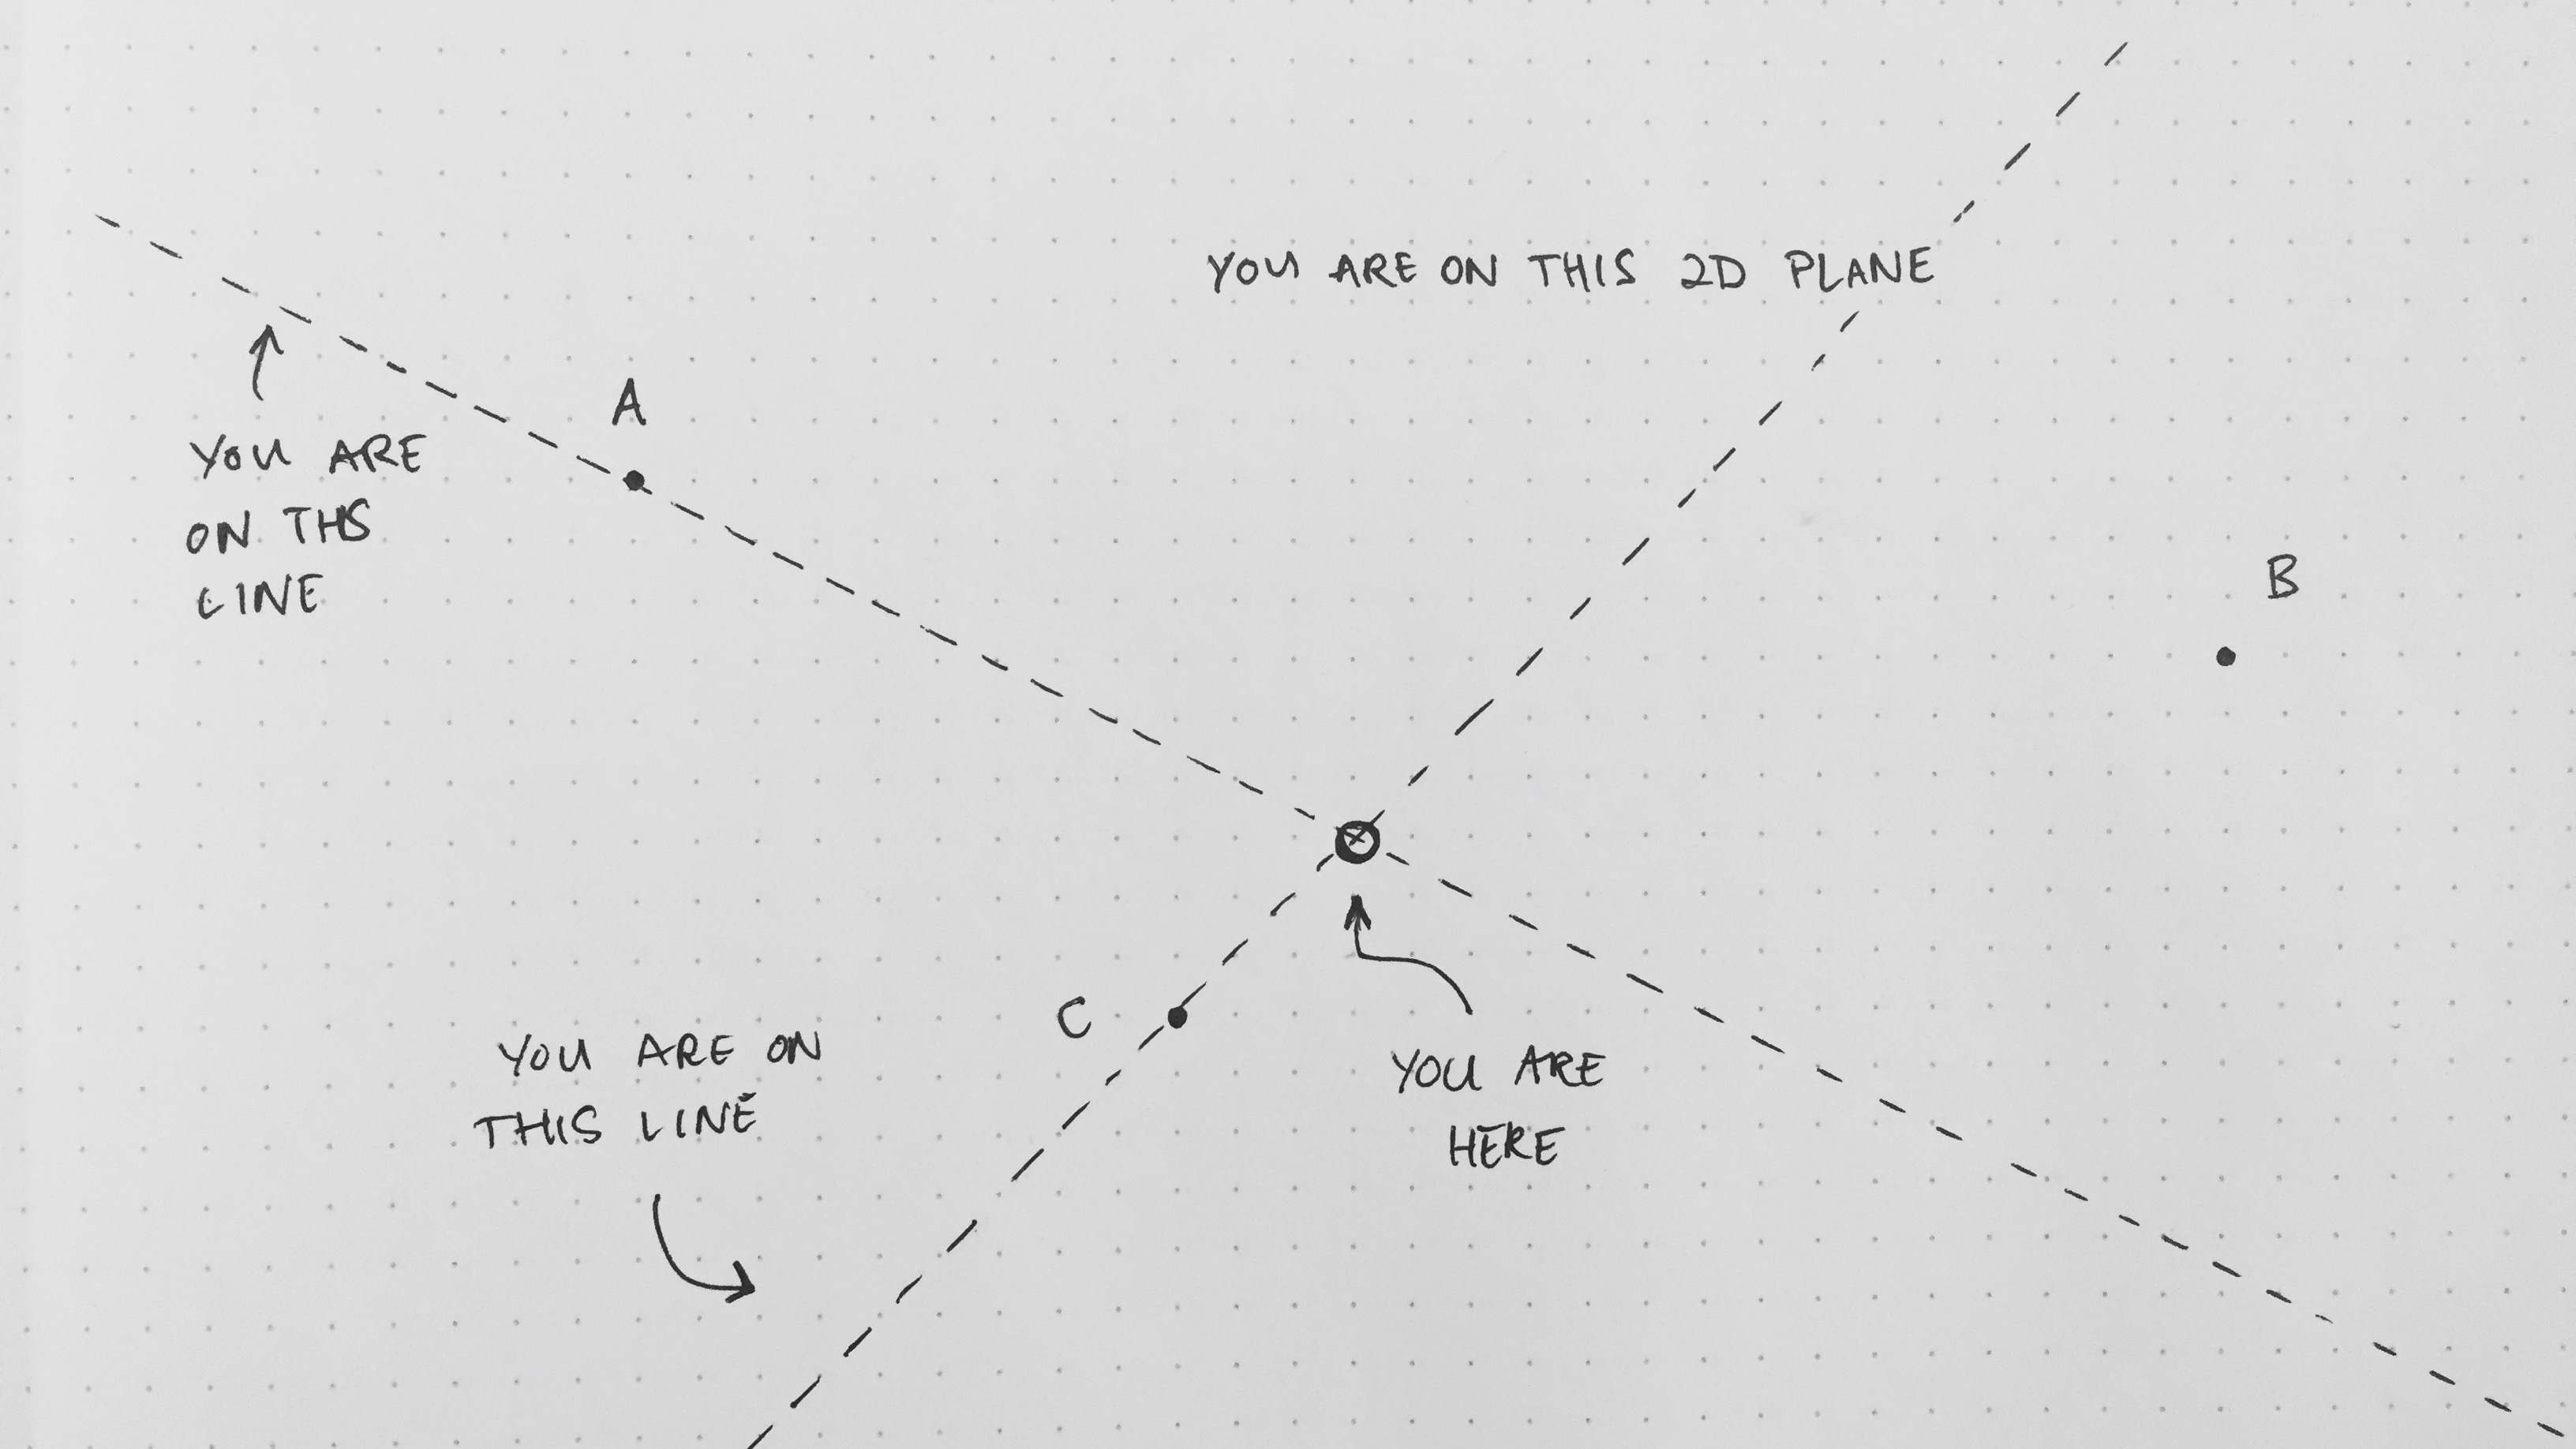 YOU ARE ON THIS 2D PLANE
A
YOU ARE
ON THS
LINE
B
C
YOU ARE ON
THIS LINE
YOU ARE
HERE